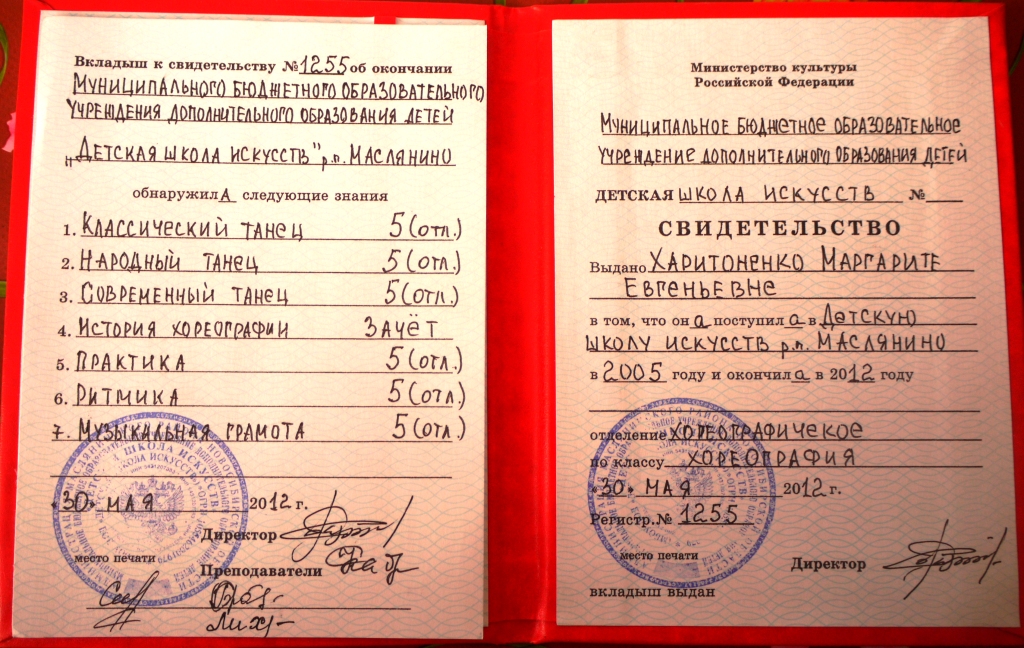 Вкладыш к свидетельству №1255 об окончании
Муниципального бюджетного образовательного
учреждения дополнительного образования детей
"Детская школа искусств" р.п. Маслянино
обнаружила следующие знания
1. Классический танец 5 (отл.)
2. Народный танец 5 (отл.)
3. Современный танец 5 (отл.)
4. История хореографии Зачёт
5. Практика 5 (отл.)
6. Ритмика 5 (отл.)
7. Музыкальная грамота 5 (отл.)
«30» мая 2012 г.
Директор
место печати
Преподаватели
Министерство культуры
Российской Федерации
Муниципальное бюджетное образовательное
учреждение дополнительного образования детей
ДЕТСКАЯ школа искусств №
СВИДЕТЕЛЬСТВО
Выдано Харитоненко Маргарите
Евгеньевне
в том, что она поступила в Детскую
школу искусств р.п. Маслянино
в 2005 году и окончила в 2012 году
отделение хореографическое
по классу хореография
«30» мая 2012 г.
Регистр.№ 1255
место печати
Директор
вкладыш выдан